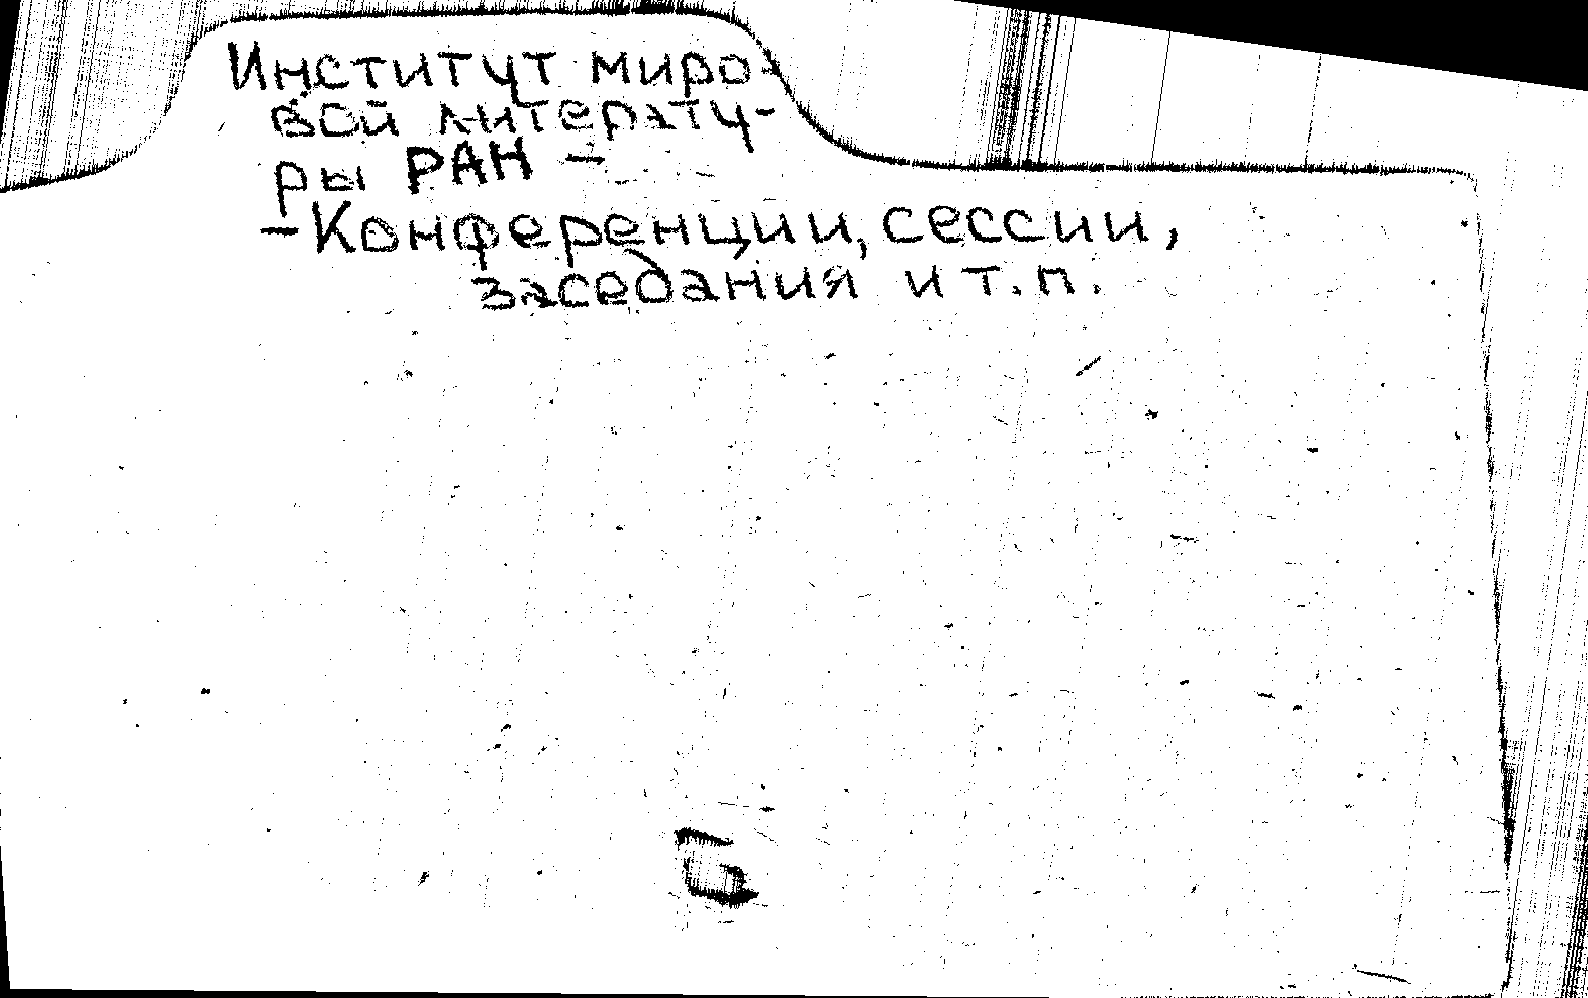 Институт миро-
вой литерату-
ры РАН —
— Конференции, сессии,
заседания и т.п.